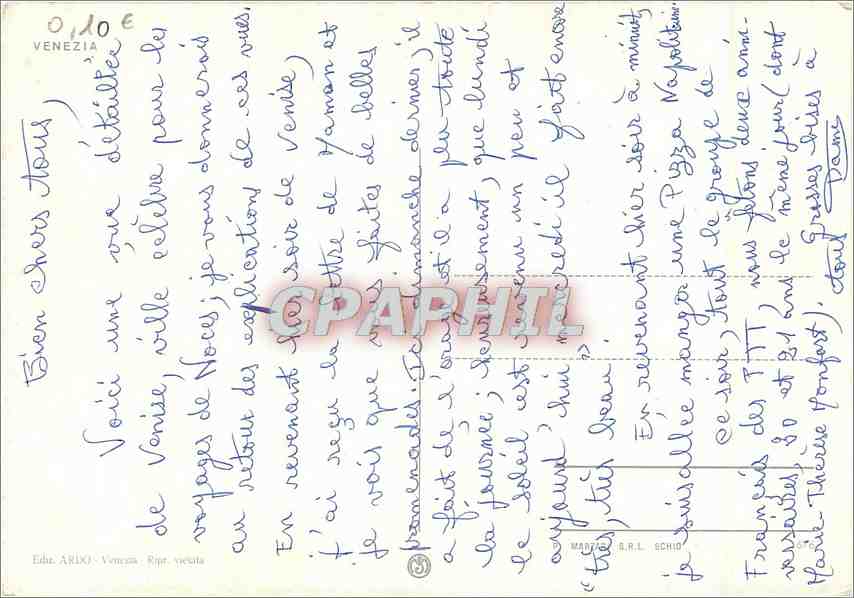 0,10 €
VENEZIA
Bien chers tous,
Voici une "vue" détaillée
de Venise, ville célèbre pour les
voyages de Noces; je vous donnerais
au retour des explications de ces vues.
En revenant hier soir de Venise,
j'ai reçu la lettre de Maman et
je vois que vous faites de belles
promenades. Ici dimanche dernier, il
a fait de l'orage et il a plu toute
la journée; heureusement, que lundi
le soleil est revenu un peu et
aujourd'hui mercredi il fait encore
"très, très beau".
En revenant hier soir à minuit,
je suis allée manger une Pizza Napolitaine.
Ce soir, tout le groupe de
Français des PTT, nous fêtons deux anni-
versaires, 30 et 21 ans le même jour (dont
Marie-Thérèse Monfort). Grosses bises à
tous
CPAPHIL
MARZARI S.R.L. SCHIO
Ediz. ARDO - Venezia - Ripr. vietata